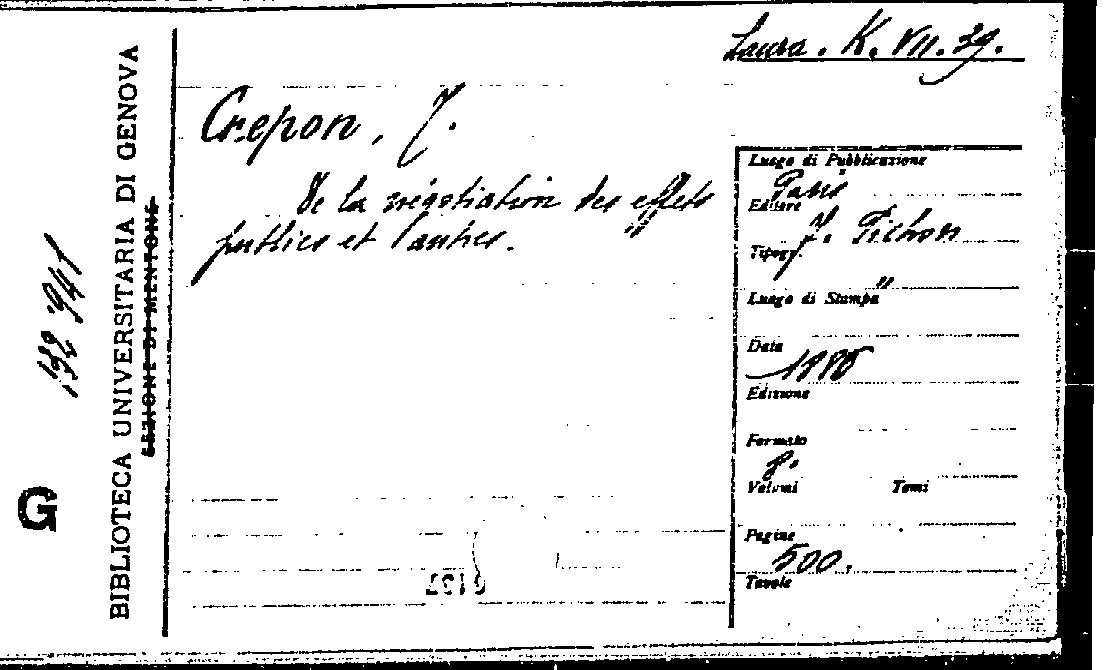 Laura. K. VII. 39.
Crepon, J.
De la négotiation des effets
publics et autres.
Luogo di Pubblicazione
Paris
Editore
J. Pichon
Tipogr.
"
Luogo di Stampa
Data
Edizione
Formato
8.
Volumi Tomi
Pagine
500.
Tavole
BIBLIOTECA UNIVERSITARIA DI GENOVA
SEZIONE DI MENTONE
132941
G